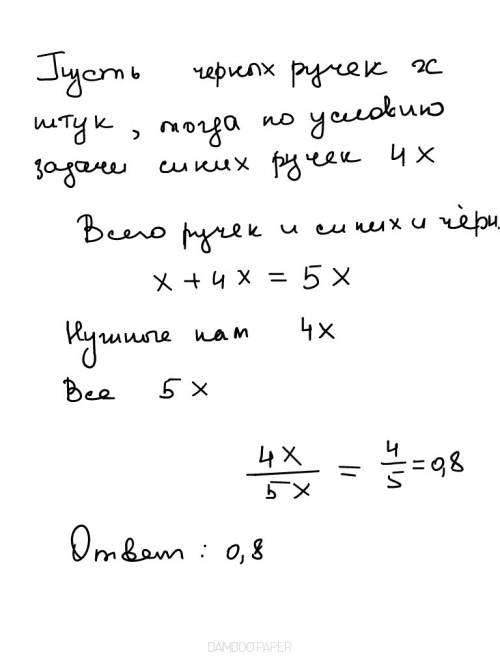 Пусть черных ручек x
штук, тогда по условию
задачи синих ручек 4x
Всего ручек и синих и чёрн.
x + 4x = 5x
Нужные нам 4x
Все 5x
4x/5x = 4/5 = 0,8
Ответ: 0,8
BAMBOOPAPER